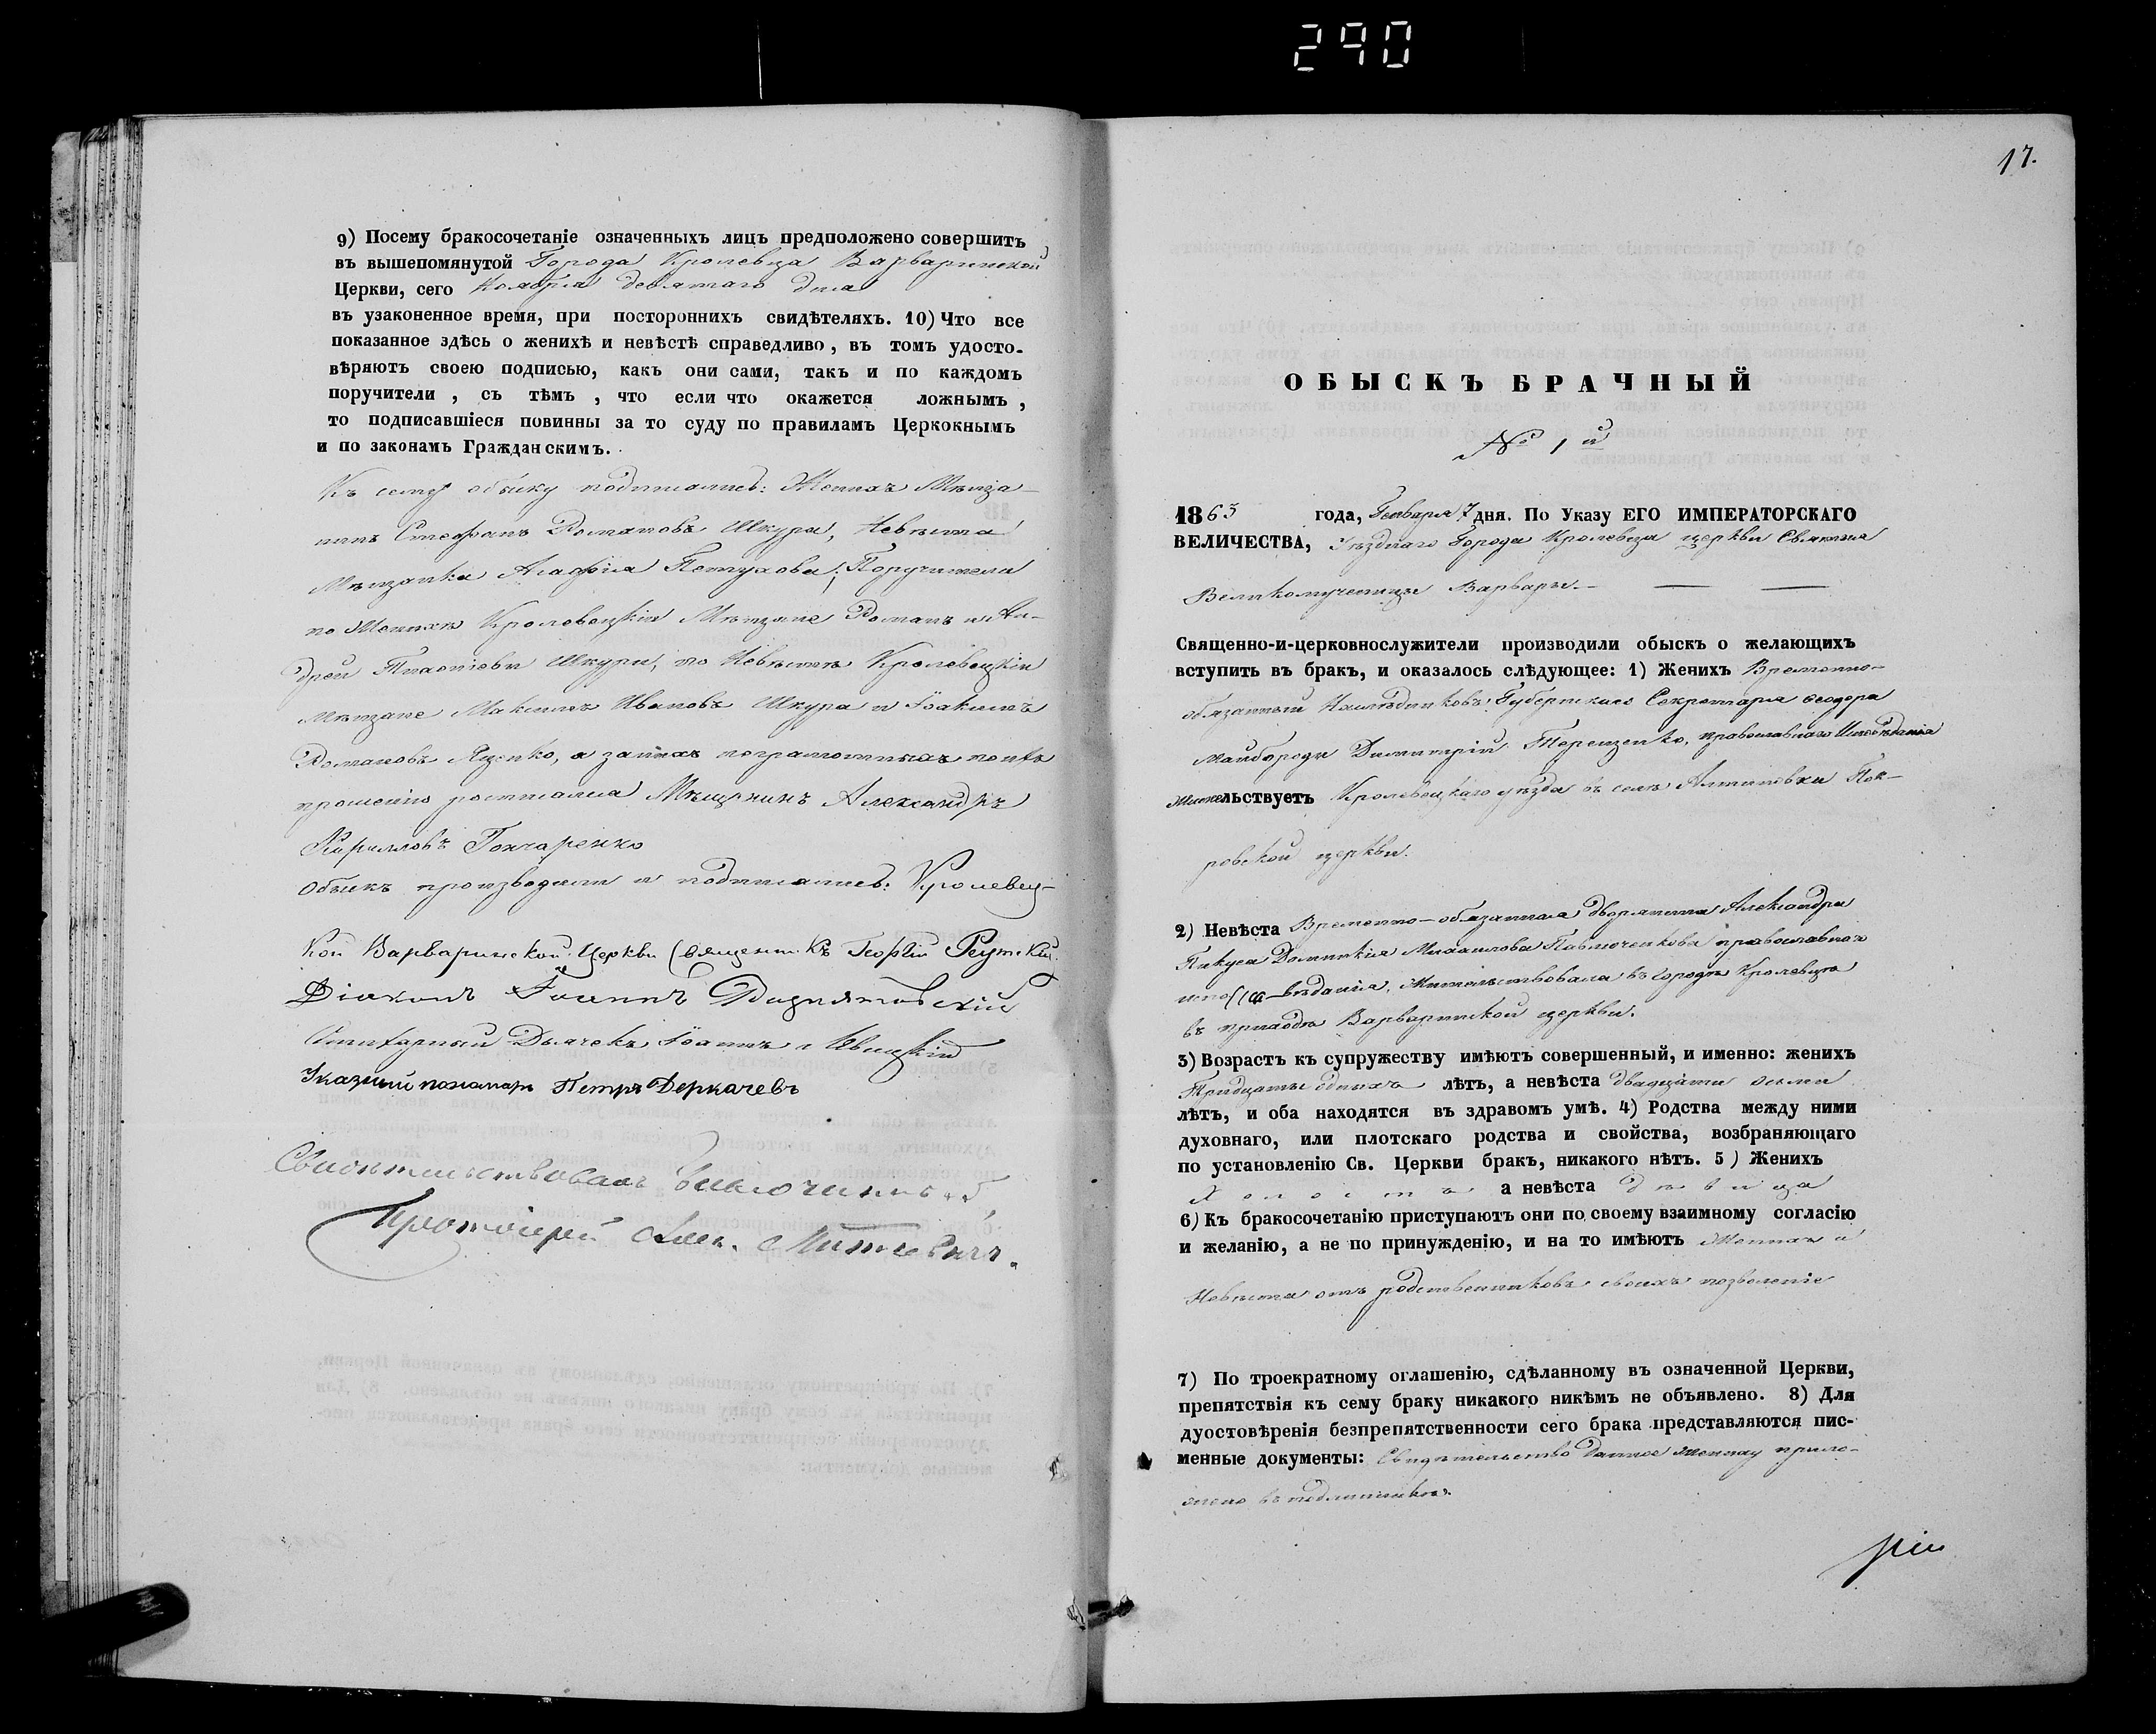 290
9) Посему бракосочетаніе означенныхъ лицъ предположено совершить
въ вышепомянутой Города Кролевца Варваринской
Церкви, сего Ноября девятаго дня
въ узаконенное время, при постороннихъ свидѣтеляхъ. 10) Что все
показанное здѣсь о женихѣ и невѣстѣ справедливо, въ томъ удосто-
вѣряютъ своею подписью, какъ они сами, такъ и по каждомъ
поручители, съ тѣмъ, что если что окажется ложнымъ,
то подписавшіеся повинны за то суду по правиламъ Церкокнымъ
и по законамъ Гражданскимъ.
Къ сему обыску подписались: Женихъ Мѣща-
нинъ Стефанъ Романовъ Шкура, Невѣста
Мѣщанка Агафія Петухова; Поручители
по Женихѣ Кролевецкіи Мѣщане Романъ и Ан-
дрей Шкури, по Невѣстѣ Кролевецкіи
Мѣщане Ивановъ Шкура и Іоакимъ
Романовъ Яценко, а за ихъ неграмотныхъ по ихъ
прошенію Мѣщанинъ Александръ
Кирилловъ Гончаренко
Обыскъ производили и подписались: Кролевец-
кой Варваринской Церкви Священникъ Георгій Реутскій.
Діаконъ Іоаннъ
Дьячекъ Іоаннъ
Указный пономарь Петръ Деркачевъ
Свидѣтельствовалъ Благочинный
Протоіерей
17.
ОБЫСКЪ БРАЧНЫЙ
№ 1й
1863 года, Генваря 7 дня. По Указу ЕГО ИМПЕРАТОРСКАГО
ВЕЛИЧЕСТВА, Уѣзднаго Города Кролевца церкви Святыя
Великомученицы Варвары.
Священно-и-церковнослужители производили обыскъ о желающихъ
вступить въ бракъ, и оказалось слѣдующее: 1) Женихъ Временно-
обязанный Наслѣдниковъ Губернскаго Секретаря Феодора
Майбороды Димитрій Терещенко, православнаго Исповѣданія
Жительствуетъ Кролевецкаго уѣзда въ селѣ Алтиновки Пок-
ровской церкви.
2) Невѣста Временно-обязанная дворянина Александра
Пикуса Домникія Михаилова Павлюченкова православнаго
исповѣданія, Жительствовала въ Городѣ Кролевцѣ
въ приходѣ Варваринской церкви.
3) Возрастъ къ супружеству имѣютъ совершенный, и именно: женихъ
Тридцати однихъ лѣтъ, а невѣста двадцати осьми
лѣтъ, и оба находятся въ здравомъ умѣ. 4) Родства между ними
духовнаго, или плотскаго родства и свойства, возбраняющаго
по установленію Св. Церкви бракъ, никакого нѣтъ. 5) Женихъ
Холостъ а невѣста дѣвица
6) Къ бракосочетанію приступаютъ они по своему взаимному согласію
и желанію, а не по принужденію, и на то имѣютъ Женихъ и
Невѣста отъ родственниковъ своихъ позволеніе
7) По троекратному оглашенію, сдѣланному въ означенной Церкви,
препятствія къ сему браку никакого никѣмъ не объявлено. 8) Для
дуостовѣренія безпрепятственности сего брака представляются пис-
менные документы: Свидѣтельство данное Жениху прило-
жено въ подлинникѣ.